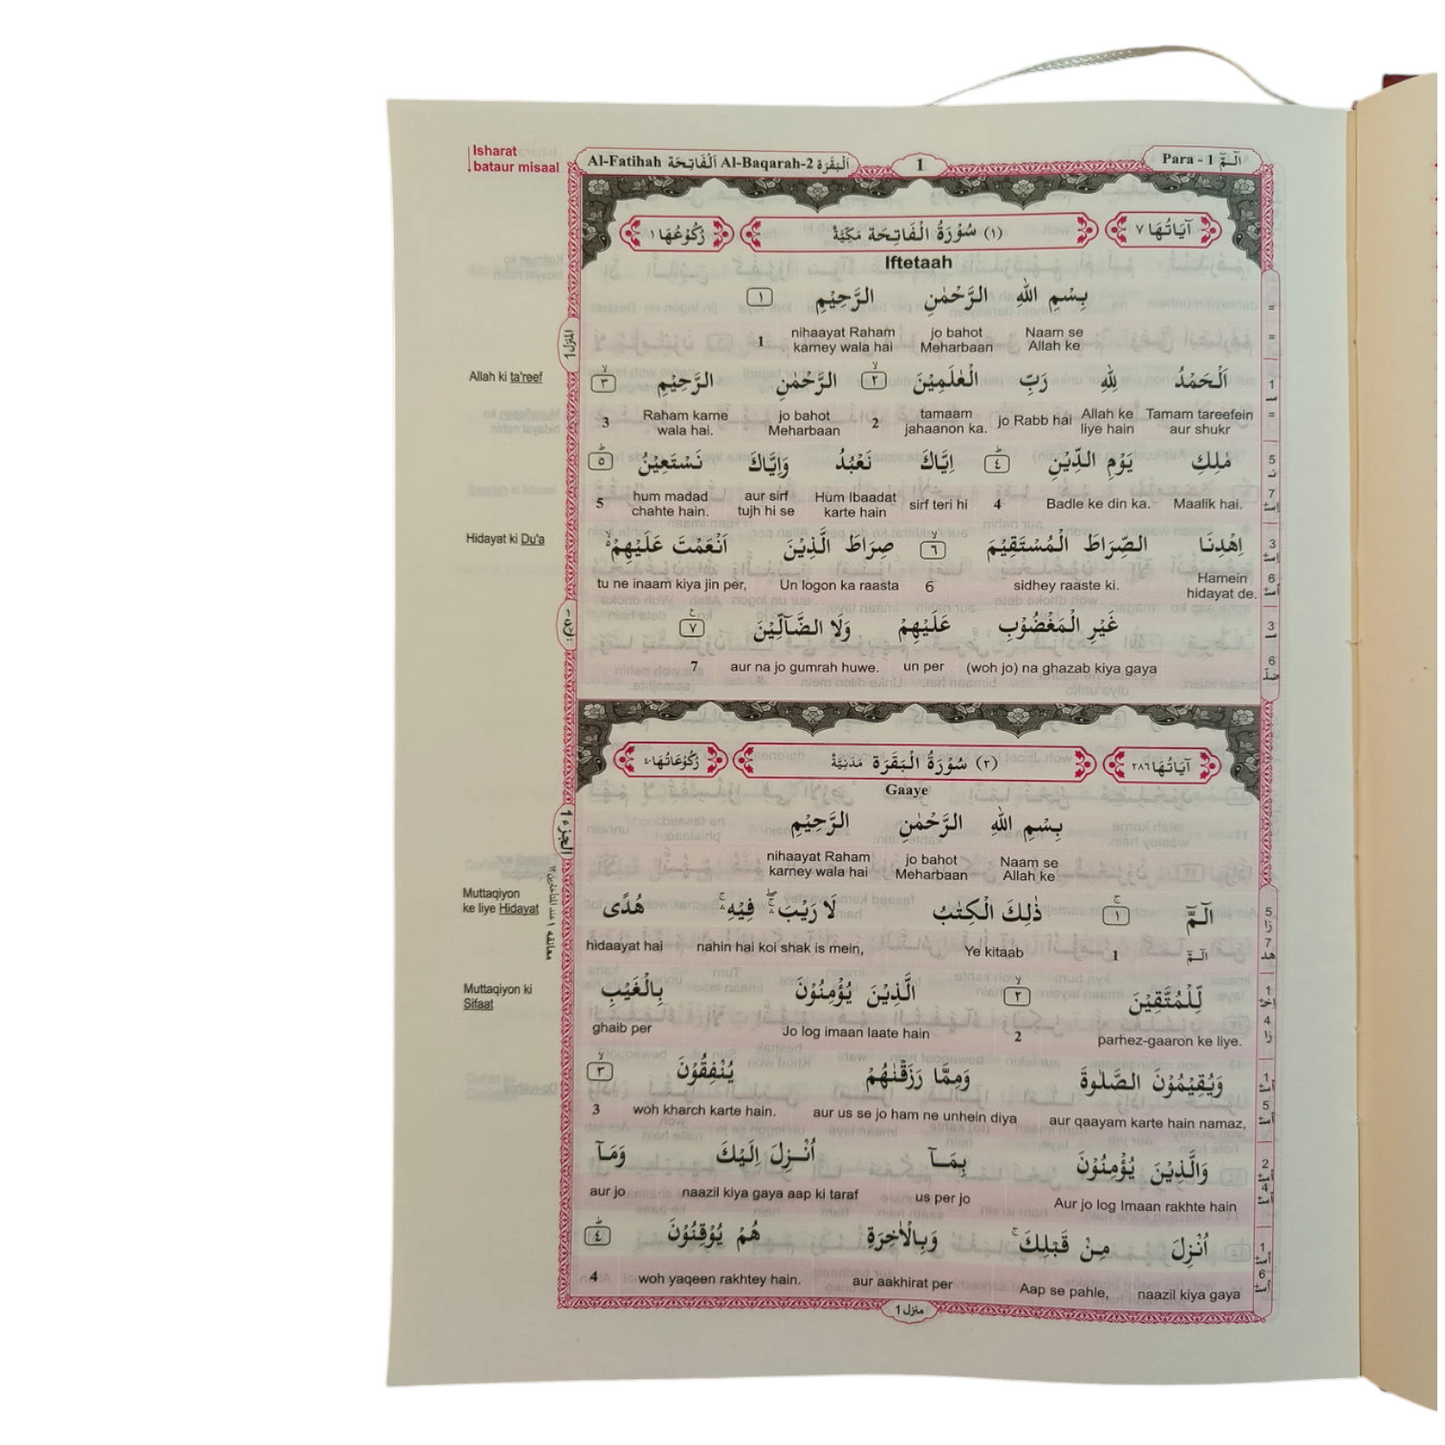 Isharat
bataur misaal
Al-Fatihah اَلْفَاتِحَة Al-Baqarah-2 اَلْبَقَرَة
1
Para - 1 الٓمّٓ
اٰيَاتُهَا ٧
(١) سُوْرَةُ الْفَاتِحَة مَكِّيَّةٌ
رُكُوْعُهَا ١
Iftetaah
بِسْمِ اللهِ الرَّحْمٰنِ الرَّحِيْمِ ١
Naam se jo bahot nihaayat Raham
Allah ke Meharbaan karney wala hai 1
المنزل 1
Allah ki ta'reef
اَلْحَمْدُ لِلّٰهِ رَبِّ الْعٰلَمِيْنَ ٢ الرَّحْمٰنِ الرَّحِيْمِ ٣
Tamam tareefein Allah ke jo Rabb hai tamaam 2 jo bahot Raham karne 3
aur shukr liye hain jahaanon ka. Meharbaan wala hai.
مٰلِكِ يَوْمِ الدِّيْنِ ٤ اِيَّاكَ نَعْبُدُ وَاِيَّاكَ نَسْتَعِيْنُ ٥
Maalik hai. Badle ke din ka. 4 sirf teri hi Hum Ibaadat aur sirf hum madad 5
karte hain tujh hi se chahte hain.
Hidayat ki Du'a
اِهْدِنَا الصِّرَاطَ الْمُسْتَقِيْمَ ٦ صِرَاطَ الَّذِيْنَ اَنْعَمْتَ عَلَيْهِمْ
Hamein sidhey raaste ki. 6 Un logon ka raasta tu ne inaam kiya jin per,
hidayat de.
غَيْرِ الْمَغْضُوْبِ عَلَيْهِمْ وَلَا الضَّآلِّيْنَ ٧
(woh jo) na ghazab kiya gaya un per aur na jo gumrah huwe. 7
اٰيَاتُهَا ٢٨٦
(٢) سُوْرَةُ الْبَقَرَة مَدَنِيَّةٌ
رُكُوْعَاتُهَا ٤٠
Gaaye
بِسْمِ اللهِ الرَّحْمٰنِ الرَّحِيْمِ
Naam se jo bahot nihaayat Raham
Allah ke Meharbaan karney wala hai
الجزء 1
Muttaqiyon
ke liye Hidayat
الٓمّٓ ١ ذٰلِكَ الْكِتٰبُ لَا رَيْبَ فِيْهِ هُدًى
الٓمّٓ 1 Ye kitaab nahin hai koi shak is mein, hidaayat hai
معانقه ١ عند المتأخرين ١٢
Muttaqiyon ki
Sifaat
لِّلْمُتَّقِيْنَ ٢ الَّذِيْنَ يُؤْمِنُوْنَ بِالْغَيْبِ
parhez-gaaron ke liye. 2 Jo log imaan laate hain ghaib per
وَيُقِيْمُوْنَ الصَّلٰوةَ وَمِمَّا رَزَقْنٰهُمْ يُنْفِقُوْنَ ٣
aur qaayam karte hain namaz, aur us se jo ham ne unhein diya woh kharch karte hain. 3
وَالَّذِيْنَ يُؤْمِنُوْنَ بِمَآ اُنْزِلَ اِلَيْكَ وَمَآ
Aur jo log Imaan rakhte hain us per jo naazil kiya gaya aap ki taraf aur jo
اُنْزِلَ مِنْ قَبْلِكَ وَبِالْاٰخِرَةِ هُمْ يُوْقِنُوْنَ ٤
naazil kiya gaya Aap se pahle, aur aakhirat per woh yaqeen rakhtey hain. 4
منزل 1